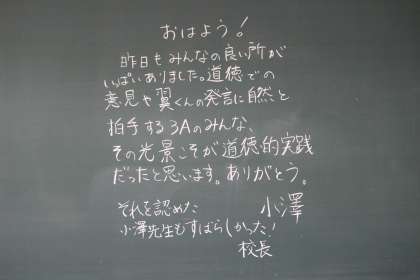 おはよう！
昨日もみんなの良い所が
いっぱいありました。道徳での
意見や翼くんの発言に自然と
拍手する3Aのみんな、
その光景こそが道徳的実践
だったと思います。ありがとう。
小澤
それを認めた
小澤先生もすばらしかった！
校長